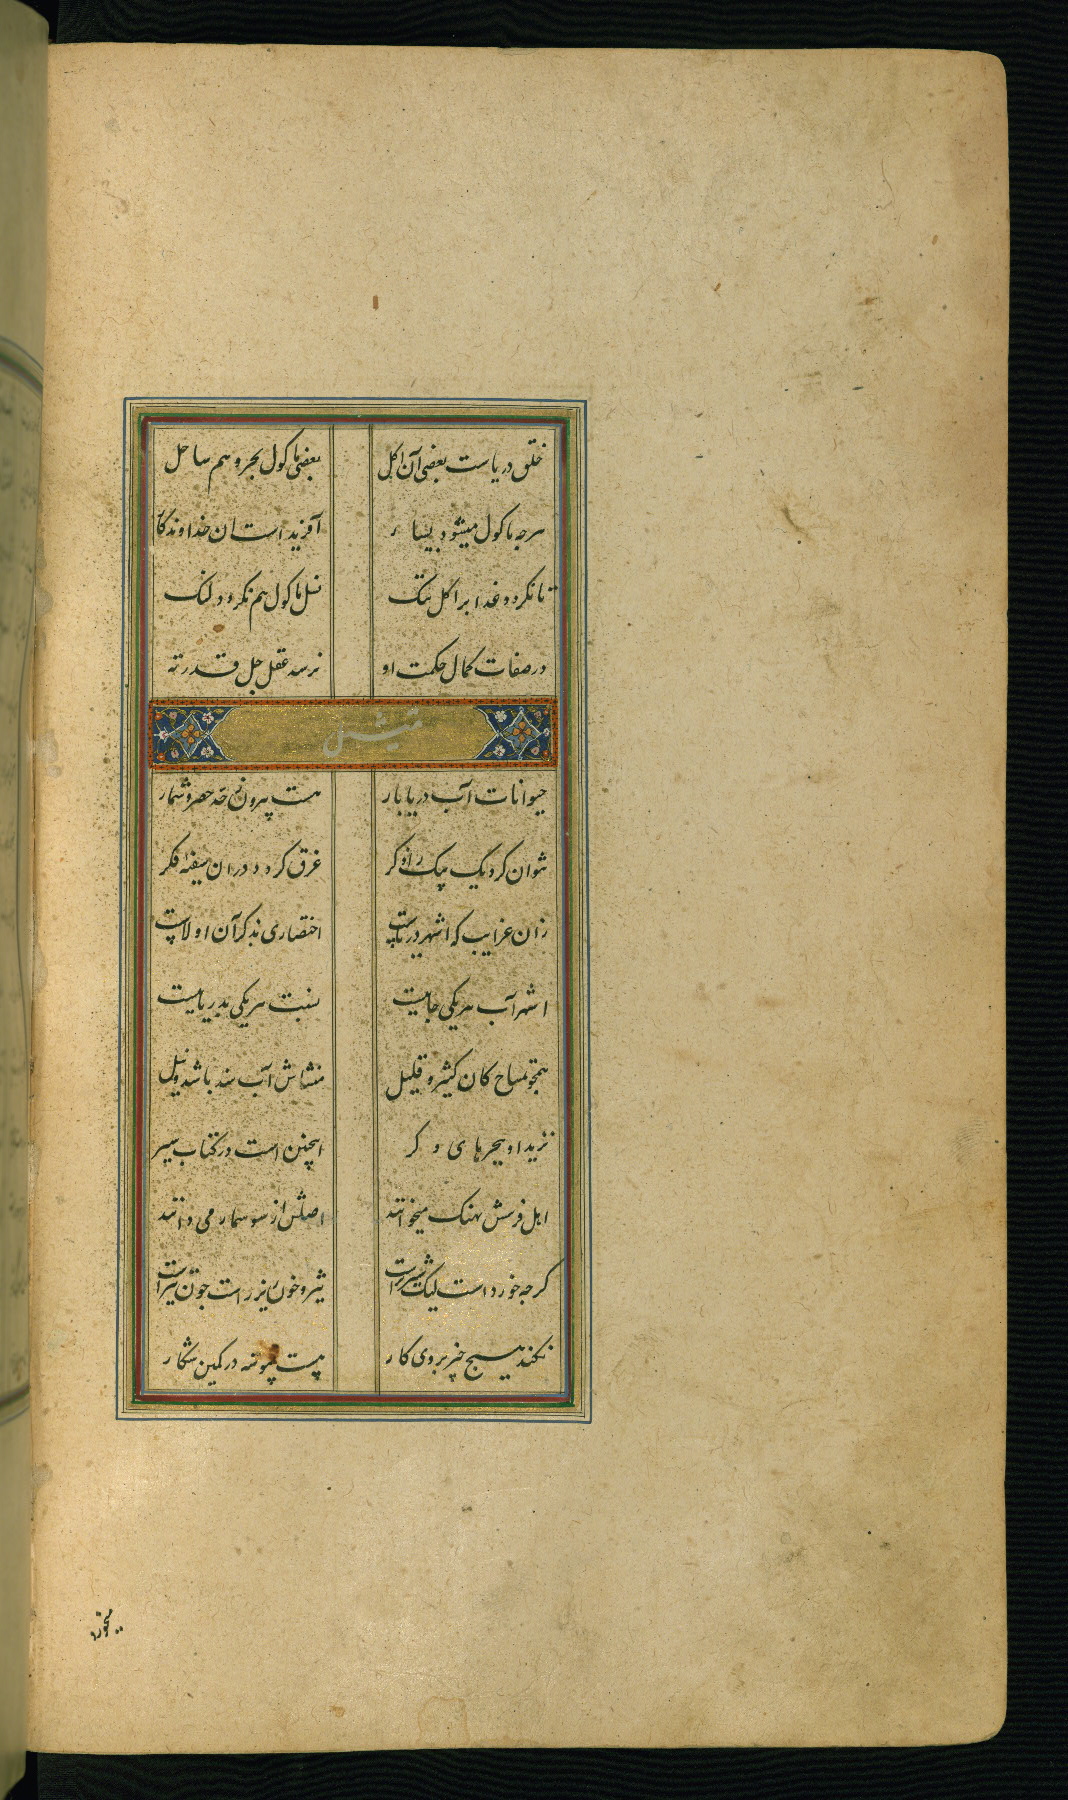 خلق دریاست بعضی آن آکل بعضی ماکول بحر و هم ساحل
هرچه ماکول میشود بسیار آفریده است آن خداوندگار
تا نکردد غذا بر آکل تنک نسل ماکول هم نکردد لنک
در صفات کمال حکمت او نرسد عقل جل قدرته
تمثیل
حیوانات آب دریا بار هست بیرون ز حد حصر و شمار
نتوان کرد یک بیک را ذکر غرق کردد در آن سفینه فکر
زان غرایب که اشهر دریاست اختصاری بذکر آن اولاست
اشهر آب هر یکی جاییست نسبت هر یکی بدریاییست
همچو تمساح کان کثیر و قلیل منشاش آب سند باشد و نیل
نزید او ببحرهای دگر اینچنین است در کتاب سیر
اهل فرسش نهنک میخوانند اصلش از سوسمار می دانند
کرچه خورد است لیک شیر است شیر و خون ریز است چون تیر است
نکند هیچ چیز بر وی کار هست پیوسته در کمین شکار
میخورد